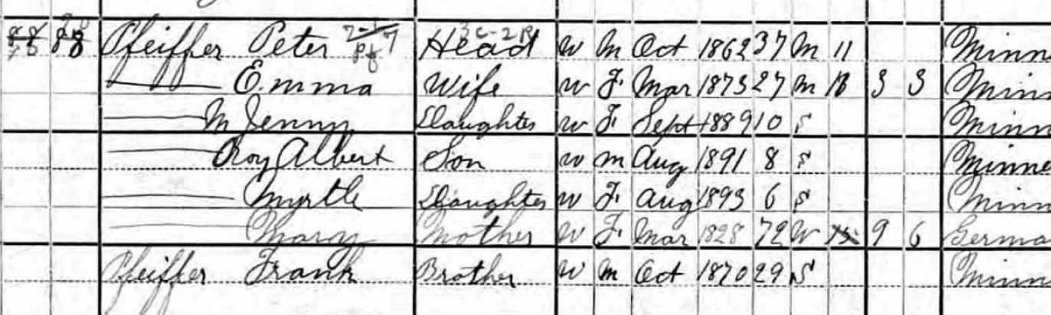 Pfeiffer Peter Head W M Oct 1862 37 M 11 Minn
Emma Wife W F Mar 1873 27 M 3 3 Minn
M Jenny Daughter W F Sept 1889 10 S Minn
Roy Albert Son W M Aug 1891 8 S Minne
Myrtle Daughter W F Aug 1893 6 S Minn
Mary Mother W F Mar 1828 72 W 9 6 Germa
Pfeiffer Frank Brother W M Oct 1870 29 S Minn